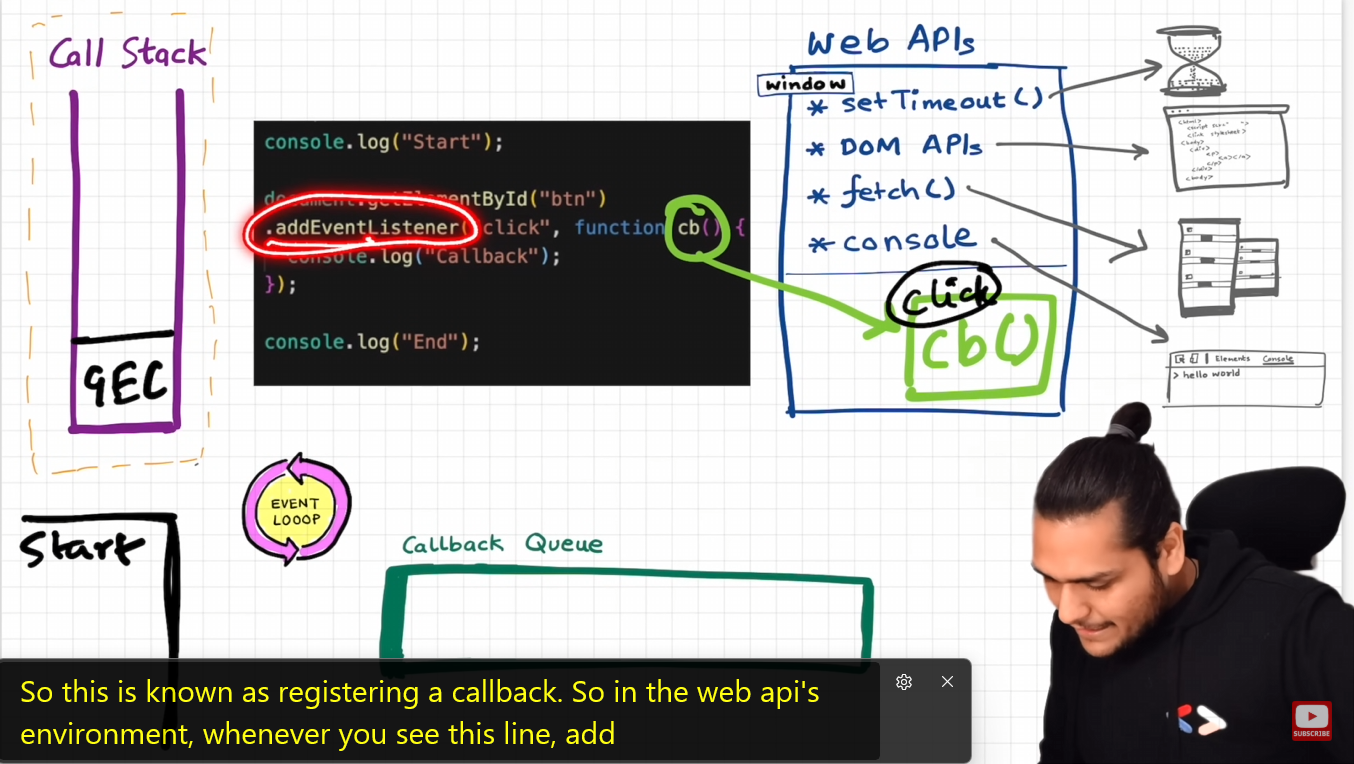 Call Stack
GEC
Start
console.log("Start");
document.getElementById("btn")
.addEventListener("click", function cb() {
console.log("Callback");
});
console.log("End");
Web APIs
window
* setTimeout()
* DOM APIs
* fetch()
* console
click
cb()
Elements Console
> hello world
EVENT
LOOOP
Callback Queue
So this is known as registering a callback. So in the web api's
environment, whenever you see this line, add
SUBSCRIBE